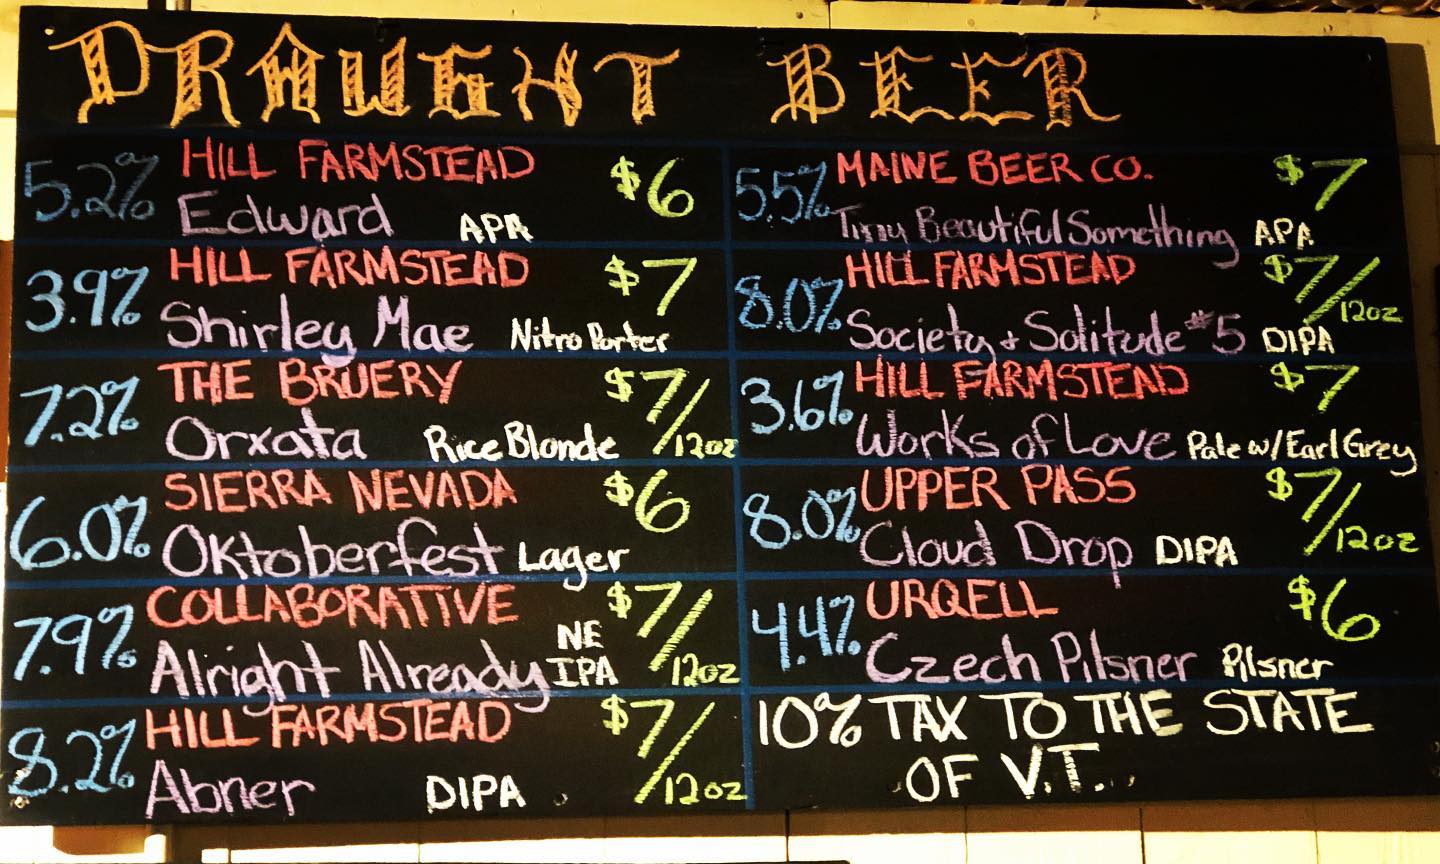 DRAUGHT BEER
5.2% HILL FARMSTEAD $6
Edward APA
3.9% HILL FARMSTEAD $7
Shirley Mae Nitro Porter
7.2% THE BRUERY $7/12oz
Orxata Rice Blonde
6.0% SIERRA NEVADA $6
Oktoberfest Lager
7.9% COLLABORATIVE $7/12oz
Alright Already NE IPA
8.2% HILL FARMSTEAD $7/12oz
Abner DIPA
5.5% MAINE BEER CO. $7
Tiny Beautiful Something APA
8.0% HILL FARMSTEAD $7/12oz
Society & Solitude #5 DIPA
3.6% HILL FARMSTEAD $7
Works of Love Pale w/Earl Grey
8.0% UPPER PASS $7/12oz
Cloud Drop DIPA
4.4% URQELL $6
Czech Pilsner Pilsner
10% TAX TO THE STATE
OF V.T...